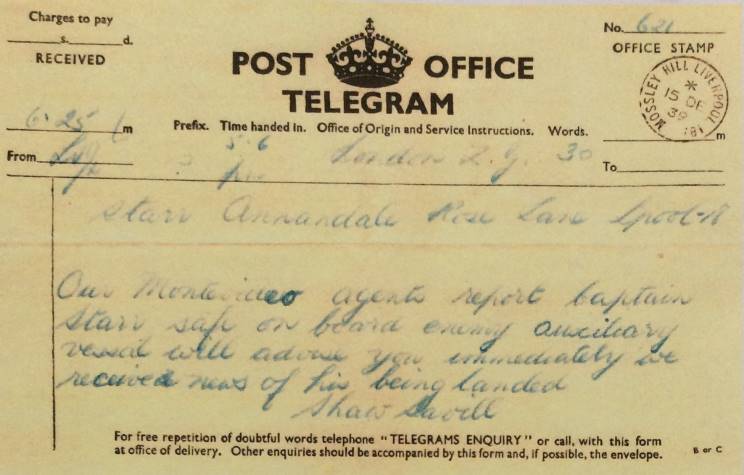 Charges to pay
s. d.
RECEIVED
POST OFFICE
TELEGRAM
No. 621
OFFICE STAMP
MOSSLEY HILL LIVERPOOL 18
15 DE
39
6.25 m
Prefix. Time handed in. Office of Origin and Service Instructions. Words.
m
From
5.6
London 30
To
Starr Annandale Rose Lane Lpool-18
Our Montevideo agents report Captain
Starr safe on board enemy auxiliary
vessel will advise you immediately we
received news of his being landed
Shaw Savill
For free repetition of doubtful words telephone "TELEGRAMS ENQUIRY" or call, with this form
at office of delivery. Other enquiries should be accompanied by this form and, if possible, the envelope.
B or C